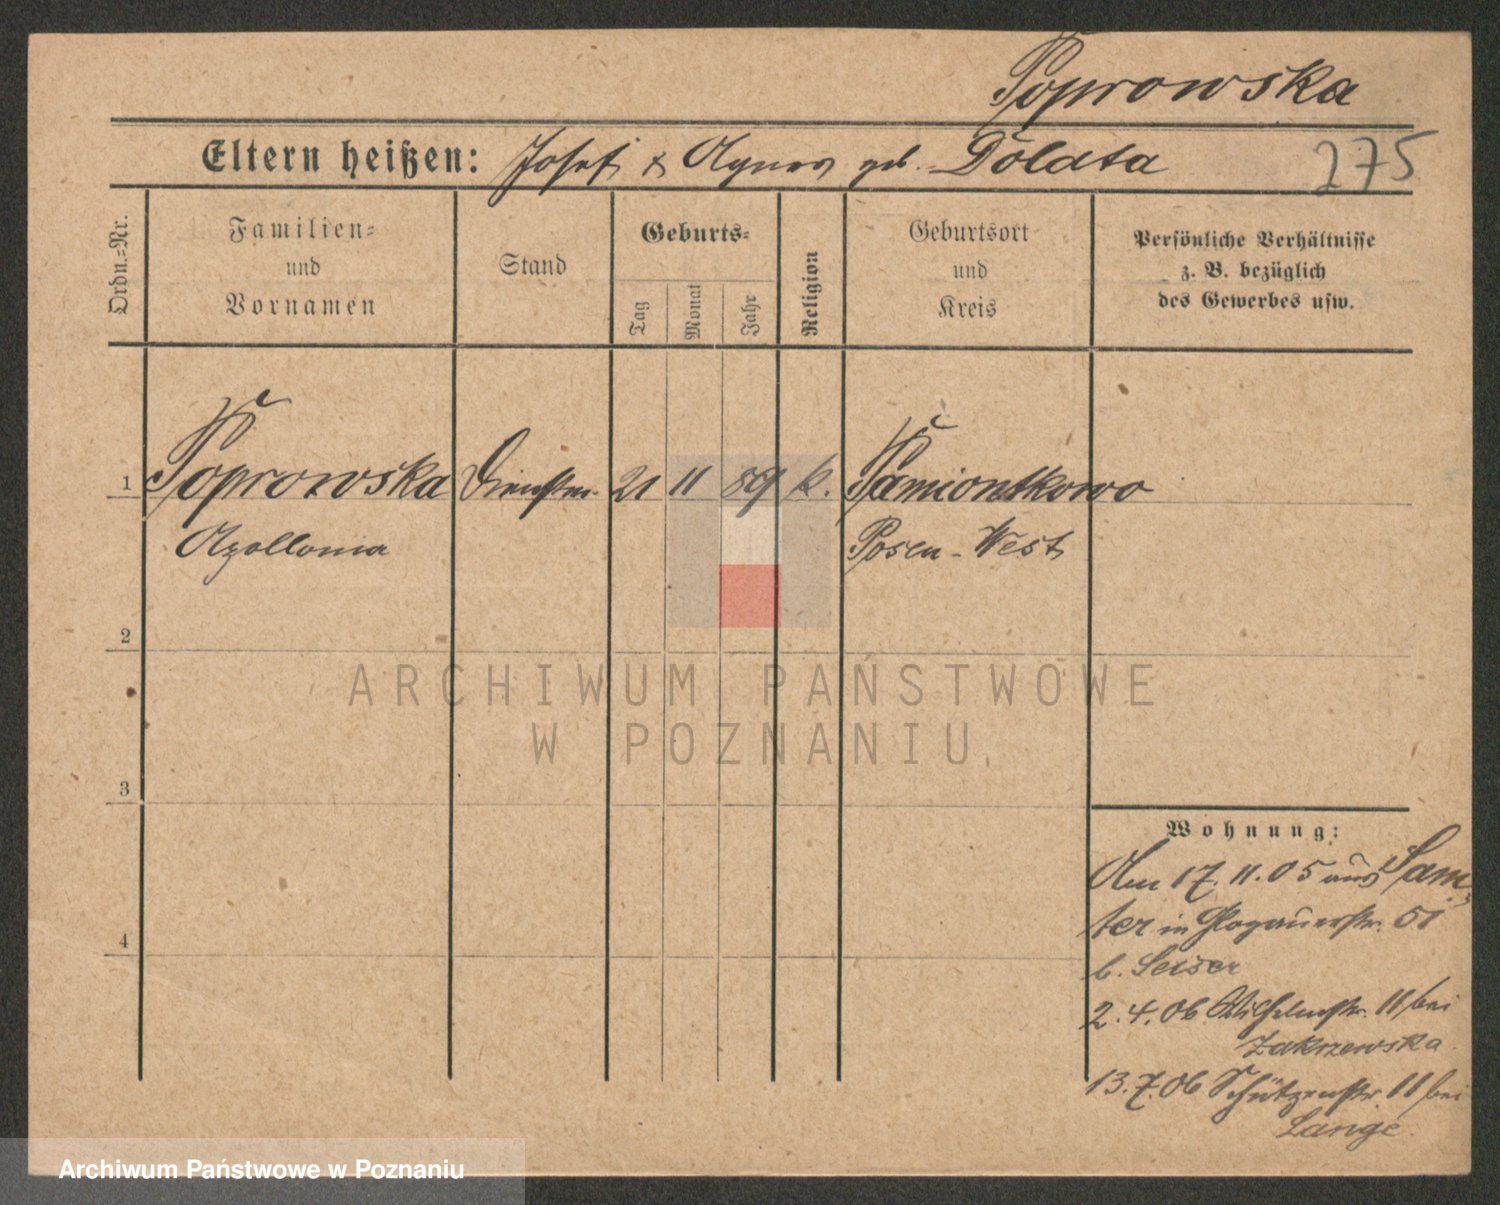 Poprowska
Eltern heißen: Josef & Agnes geb. Dolata
275
Ordn.=Nr.
Familien=
und
Vornamen
Stand
Geburts=
Tag
Monat
Jahr
Religion
Geburtsort
und
Kreis
Persönliche Verhältnisse
z. B. bezüglich
des Gewerbes usw.
1 Poprowska Dienstm. 21 11 89 k. Pamiontkowo
Apollonia Posen-West
2
3
4
Wohnung:
Am 17.11.05 aus Sam-
ter in Glogauerstr. 51
b. Seiser
2.4.06 Wilhelmstr. 11 bei
Zakrzewska
13.7.06 Schützenstr. 11 bei
Lange.
ARCHIWUM PAŃSTWOWE
W POZNANIU
Archiwum Państwowe w Poznaniu